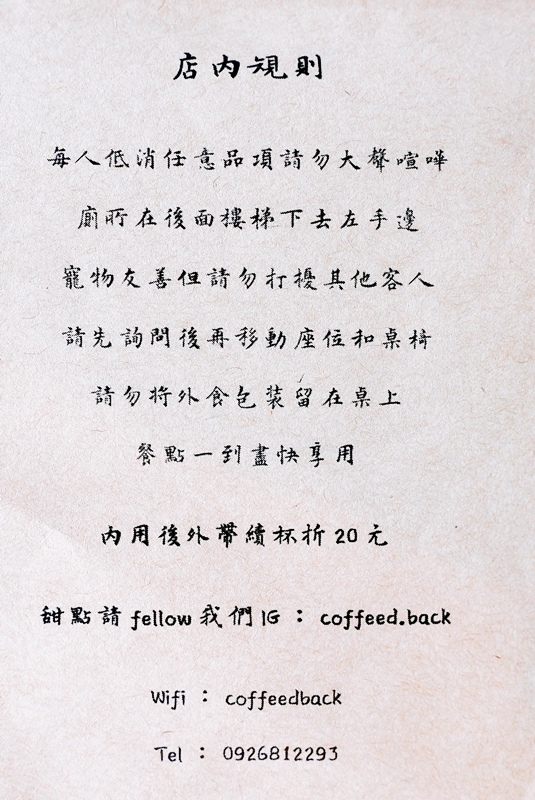 店內規則
每人低消任意品項請勿大聲喧嘩
廁所在後面樓梯下去左手邊
寵物友善但請勿打擾其他客人
請先詢問後再移動座位和桌椅
請勿將外食包裝留在桌上
餐點一到盡快享用
內用後外帶續杯折20元
甜點請fellow我們IG：coffeed.back
Wifi：coffeedback
Tel：0926812293